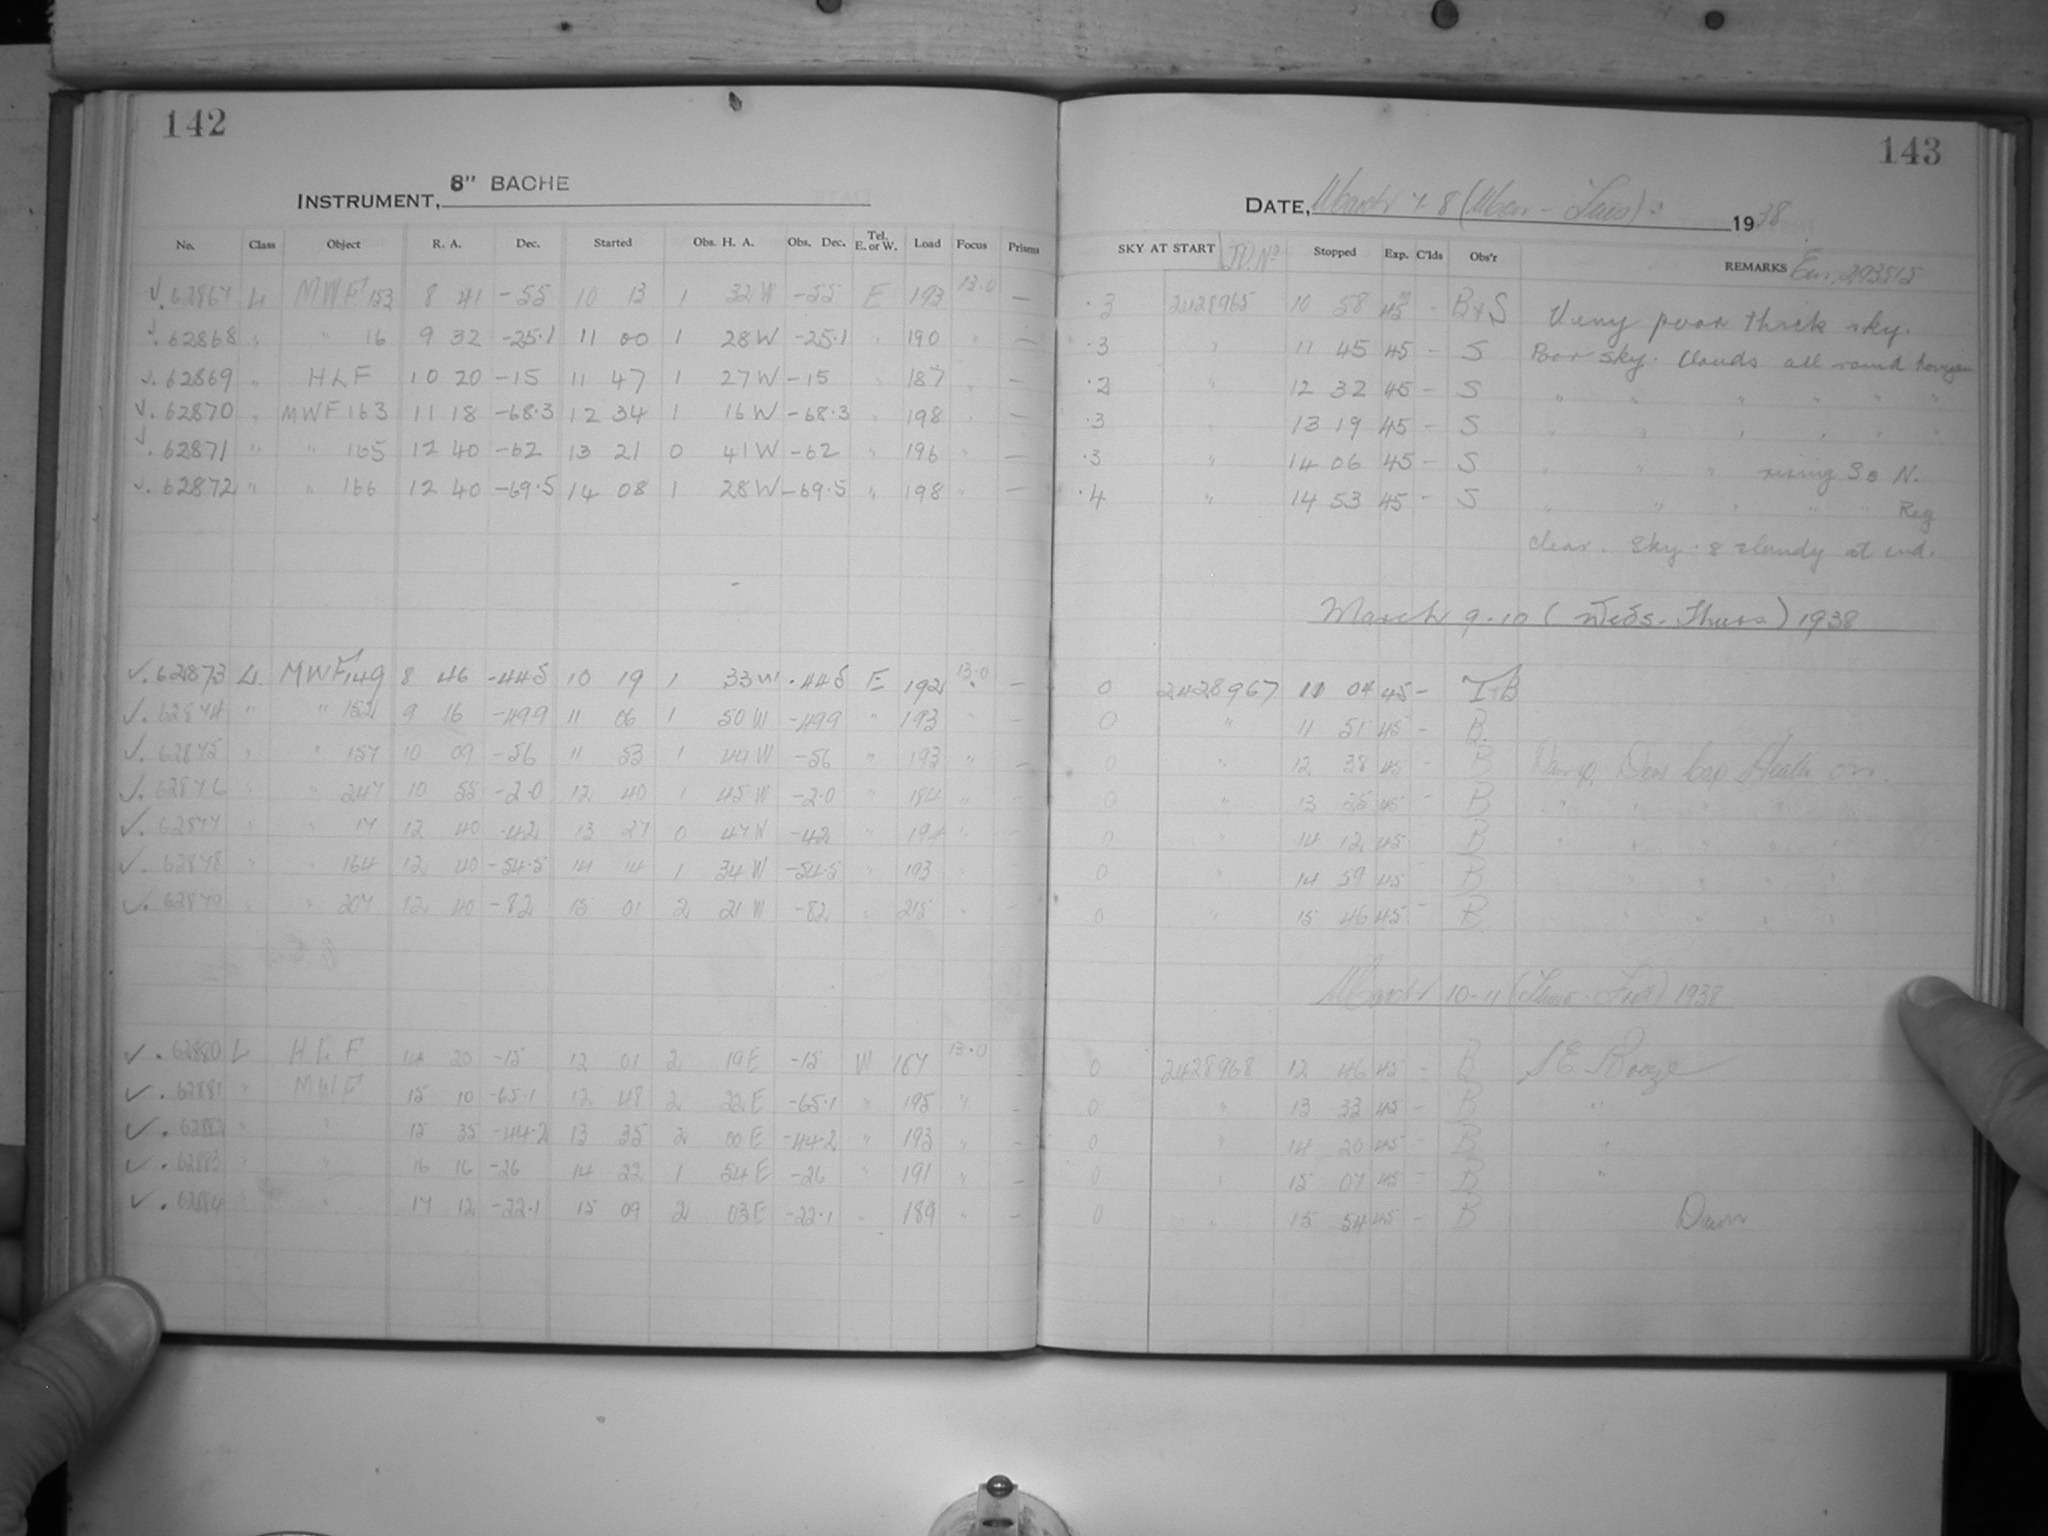 142
INSTRUMENT, 8" BACHE
No. Class Object R. A. Dec. Started Obs. H. A. Obs. Dec. Tel. E. or W. Load Focus Prisms
√. 62867 L MWF 153 8 41 -55 10 13 1 32 W -55 E 193 13.0 —
√. 62868 " " 16 9 32 -25.1 11 00 1 28 W -25.1 " 190 " —
√. 62869 " HLF 10 20 -15 11 47 1 27 W -15 " 187 " —
√. 62870 " MWF 163 11 18 -68.3 12 34 1 16 W -68.3 " 198 " —
√. 62871 " " 165 12 40 -62 13 21 0 41 W -62 " 196 " —
√. 62872 " " 166 12 40 -69.5 14 08 1 28 W -69.5 " 198 " —
√. 62873 L MWF 149 8 46 -44.5 10 19 1 33 W -44.5 E 192 13.0 —
√. 62874 " " 152 9 16 -49.9 11 06 1 50 W -49.9 " 193
√. 62875 " " 157 10 09 -56 11 53 1 44 W -56 " 193 " —
√. 62876 " " 247 10 55 -2.0 12 40 1 45 W -2.0 " 184 " —
√. 62877 " " 17 12 40 -42 13 27 0 47 W -42 " " —
√. 62878 " " 164 12 40 -54.5 14 14 1 34 W -54.5 " 193 " —
√. 62879 " " 207 12 40 -82 15 01 2 21 W -82 " 215 " —
√. 62880 L HLF 14 20 -15 12 01 2 19 E -15 W 187 13.0 —
√. 62881 " MWF 15 10 -65.1 12 48 2 22 E -65.1 " 195 " —
√. 62882 " " 15 35 -44.2 13 35 2 00 E -44.2 " 193 " —
√. 62883 " " 16 16 -26 14 22 1 54 E -26 " 191 " —
√. 62884 " " 17 12 -22.1 15 09 2 03 E -22.1 " 189 " —
143
DATE, March 7.8 (Mon - Tues) 1938
SKY AT START J.D. No Stopped Exp. C'lds Obs'r REMARKS
.3 2428965 10 58 45 - B+S Very poor thick sky.
.3 " 11 45 45 - S Poor sky. Clouds all round
.2 " 12 32 45 - S " " " " " "
.3 " 13 19 45 - S " " " " " "
.3 " 14 06 45 - S " " " rising So N.
.4 " 14 53 45 - S " " " " " Reg
clear. Sky .8 cloudy at end.
March 9.10 (Weds. Thurs) 1938
0 2428967 11 04 45 - B
0 " 11 51 45 - B.
0 " 12 38 45 - B Damp, Dew Cap Heater on.
0 " 13 25 45 - B " " " " "
0 " 14 12 45 - B " " " " "
0 " 14 59 45 - B " " " " "
0 " 15 46 45 - B " " " " "
March 10-11 (Thur. - Frid) 1938
0 2428968 12 46 45 - B SE Breeze
0 " 13 33 45 - B "
0 " 14 20 45 - B "
0 " 15 07 45 - B "
0 " 15 54 45 - B Dawn